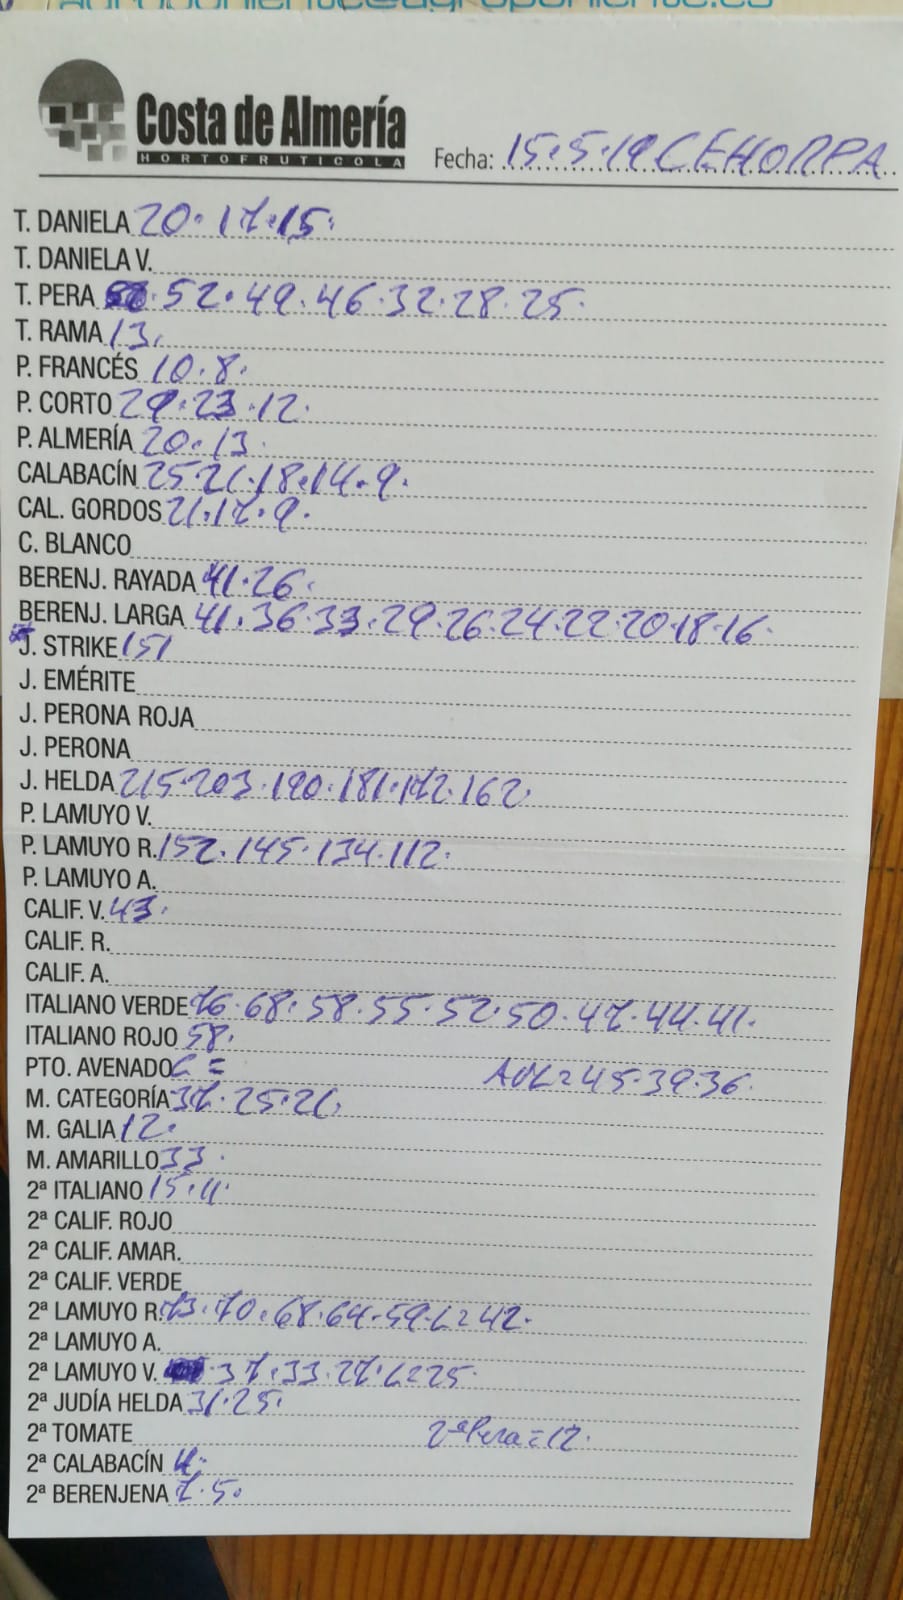 agroponiente@agroponiente.es
Costa de Almería
HORTOFRUTICOLA
Fecha: 15.5.19 CEHORPA
T. DANIELA 20. 17. 15.
T. DANIELA V.
T. PERA . 52. 49. 46. 32. 28. 25.
T. RAMA 13.
P. FRANCÉS 10. 8.
P. CORTO 29. 23. 12.
P. ALMERÍA 20. 13.
CALABACÍN 25 21. 18. 14. 9.
CAL. GORDOS 21. 17. 9.
C. BLANCO
BERENJ. RAYADA 41. 26.
BERENJ. LARGA 41. 36. 33. 29. 26. 24. 22. 20. 18. 16.
J. STRIKE 151
J. EMÉRITE
J. PERONA ROJA
J. PERONA
J. HELDA 215. 203. 190. 181. 172. 162.
P. LAMUYO V.
P. LAMUYO R. 152. 145. 134. 112.
P. LAMUYO A.
CALIF. V. 43.
CALIF. R.
CALIF. A.
ITALIANO VERDE 76. 68. 58. 55. 52. 50. 47. 44. 41.
ITALIANO ROJO 58.
PTO. AVENADO C = 45. 39. 36.
M. CATEGORÍA 37. 25. 21.
M. GALIA 12.
M. AMARILLO 33.
2ª ITALIANO 15. 11.
2ª CALIF. ROJO
2ª CALIF. AMAR.
2ª CALIF. VERDE
2ª LAMUYO R. 73. 70. 68. 64. 59. C = 42.
2ª LAMUYO A.
2ª LAMUYO V. 37. 33. 27. C = 25.
2ª JUDÍA HELDA 31. 25.
2ª TOMATE 2ª Pera = 12.
2ª CALABACÍN
2ª BERENJENA 7. 5.